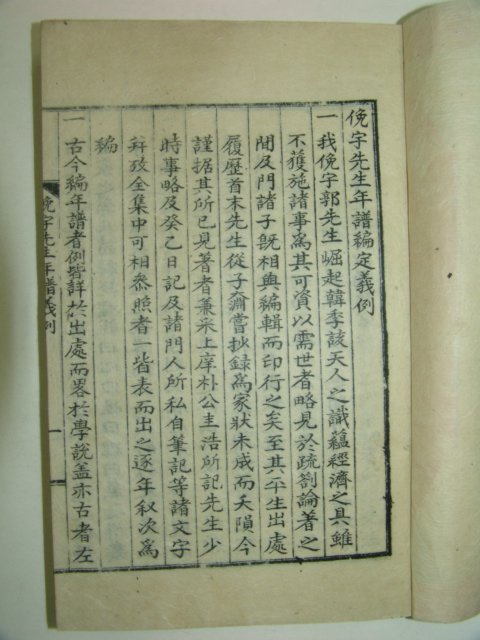 俛宇先生年譜編定義例
一我俛宇郭先生崛起韓季該天人之識蘊經濟之具雖
不獲施諸事爲其可資以需世者略見於疏劄論著之
間及門諸子旣相與編輯而印行之矣至其平生出處
履歷首末先生從子奫嘗抄錄爲家狀未成而夭隕今
謹据其所已見著者兼采上庠朴公圭浩所記先生少
時事略及癸乙日記及諸門人所私自筆記等諸文字
幷攷全集中可相參照者一皆表而出之逐年叙次爲
編
一古今編年譜者例皆詳於出處而畧於學說盖亦古者左
俛宇先生年譜義例
一